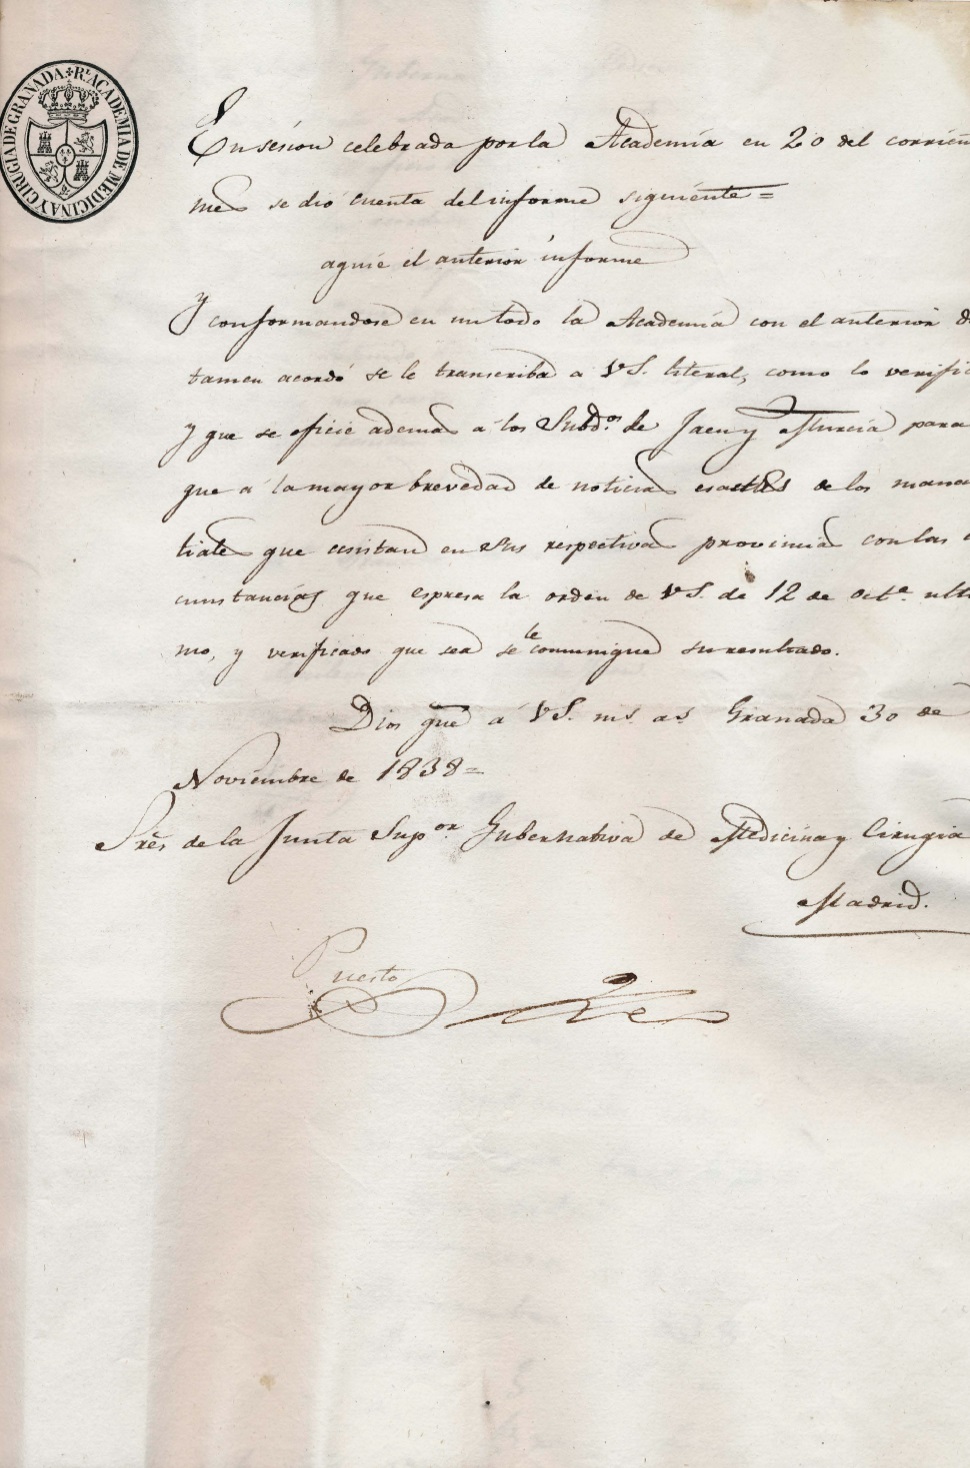 Rl ACADEMIA DE MEDICINA Y CIRUGIA DE GRANADA
En sesion celebrada por la Academia en 20 del corrien
mes se dió cuenta del informe siguiente=
aquie el anterior informe
Y conformandose en un todo la Academia con el anterior dic
tamen acordó se le transcriba a VS. literal, como lo verific
y que se oficie ademas a los Subd.os de Jaen y Murcia para
que a la mayor brevedad de noticias esactas de los mana
tiales que ecsistan en sus respectivas provincias con las c
cunstancias que espresa la orden de VS. de 12 de oct.e ulti
mo, y verificado que sea se le comunique su resultado.
Dios gue á VS. ms. as. Granada 30 de
Noviembre de 1838=
Sres de la Junta Sup.or Gubernativa de Medicina y Cirugia
Madrid.
Puesto